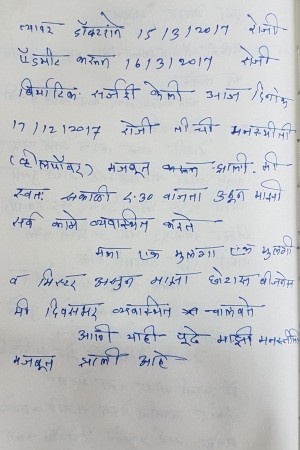 त्यावर डॉक्टरांनी 15/3/2017 रोजी
ऍडमीट करून 16/3/2017 रोजी
सर्जरी केली आज दिनांक
17/12/2017 रोजी ती ची मनस्थीती
मजबूत झाली. मी
स्वतः सकाळी 5.30 वाजता उठून माझी
सर्व कामे व्यवास्थित करते
मला एक मुलगा एक मुलगी
व मिस्टर असून माझा छोटासा बीजनेस
मी दिवसभर व्यवास्थित चालवते
आणी याही पुढे माझी मनस्थीती
मजबूत झाली आहे